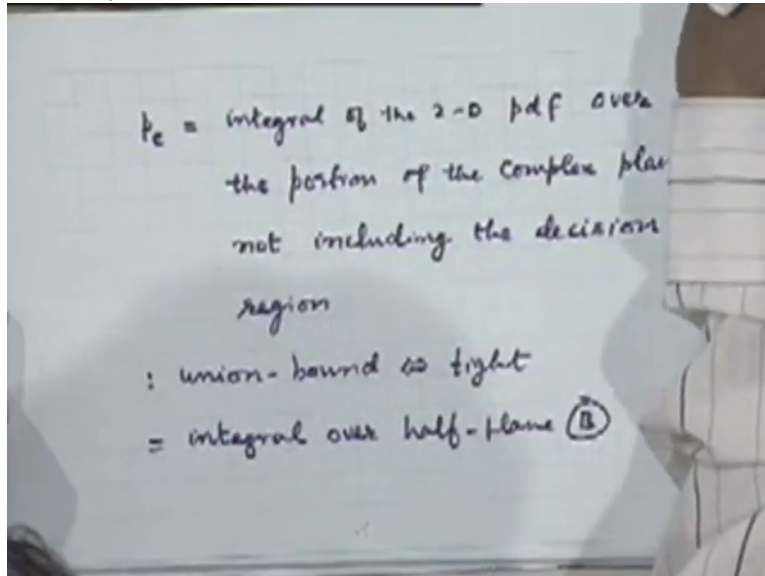 pe = integral of the 2-D pdf over
the portion of the complex plan
not including the decision
region
: union-bound ⇔ tight
= integral over half-plane B